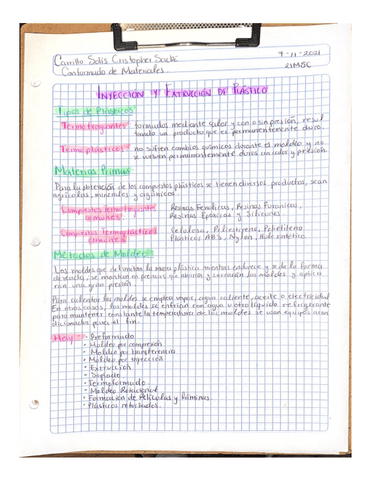 Carrillo Solis Cristopher
Conformado de Materiales.
9-11-2021
INYECCION Y EXTRUCCIÓN DE PLÁSTICO
Tipos de Plásticos
Termofraguantes: formados mediante calor y con o sin presión, resul
tando un producto que es permanentemente duro.
Termoplásticos: no sufren cambios químicos durante el moldeo y no
se vuelven permanentemente duros con calor y presión.
Materias Primas
Para la obtención de los compuestos plásticos se tienen diversos productos, sean
agrícolas, minerales y orgánicos.
Compuestos termofraguantes
comunes:
Resinas Fenólicas, Resinas Furánicas,
Resinas Epóxicas y Silicones
Compuestos termoplásticos
comunes:
Celulosa, Poliestireno, Polietileno,
Plásticos ABS, Nylon, Hule sintético.
Métodos de Moldeo
Los moldes que definirán la masa plástica mientras endurece y se da la forma
deseada, se montan en prensas que abren y cierran los moldes y aplica
con una gran presión.
Para calentar los moldes se emplea vapor, agua caliente, aceite o electricidad
En otros casos, los moldes se enfrían con agua u otro líquido refrigerante
para mantener constante la temperatura de los moldes se usan equipos acon
dicionados para el fin.
Hay:
• Preformado
• Moldeo por compresión
• Moldeo por transferencia
• Moldeo por inyección
• Extrucción
• Soplado
• Termoformado
• Moldeo Rotacional
• Formación de Películas y láminas
• Plásticos reforzados.